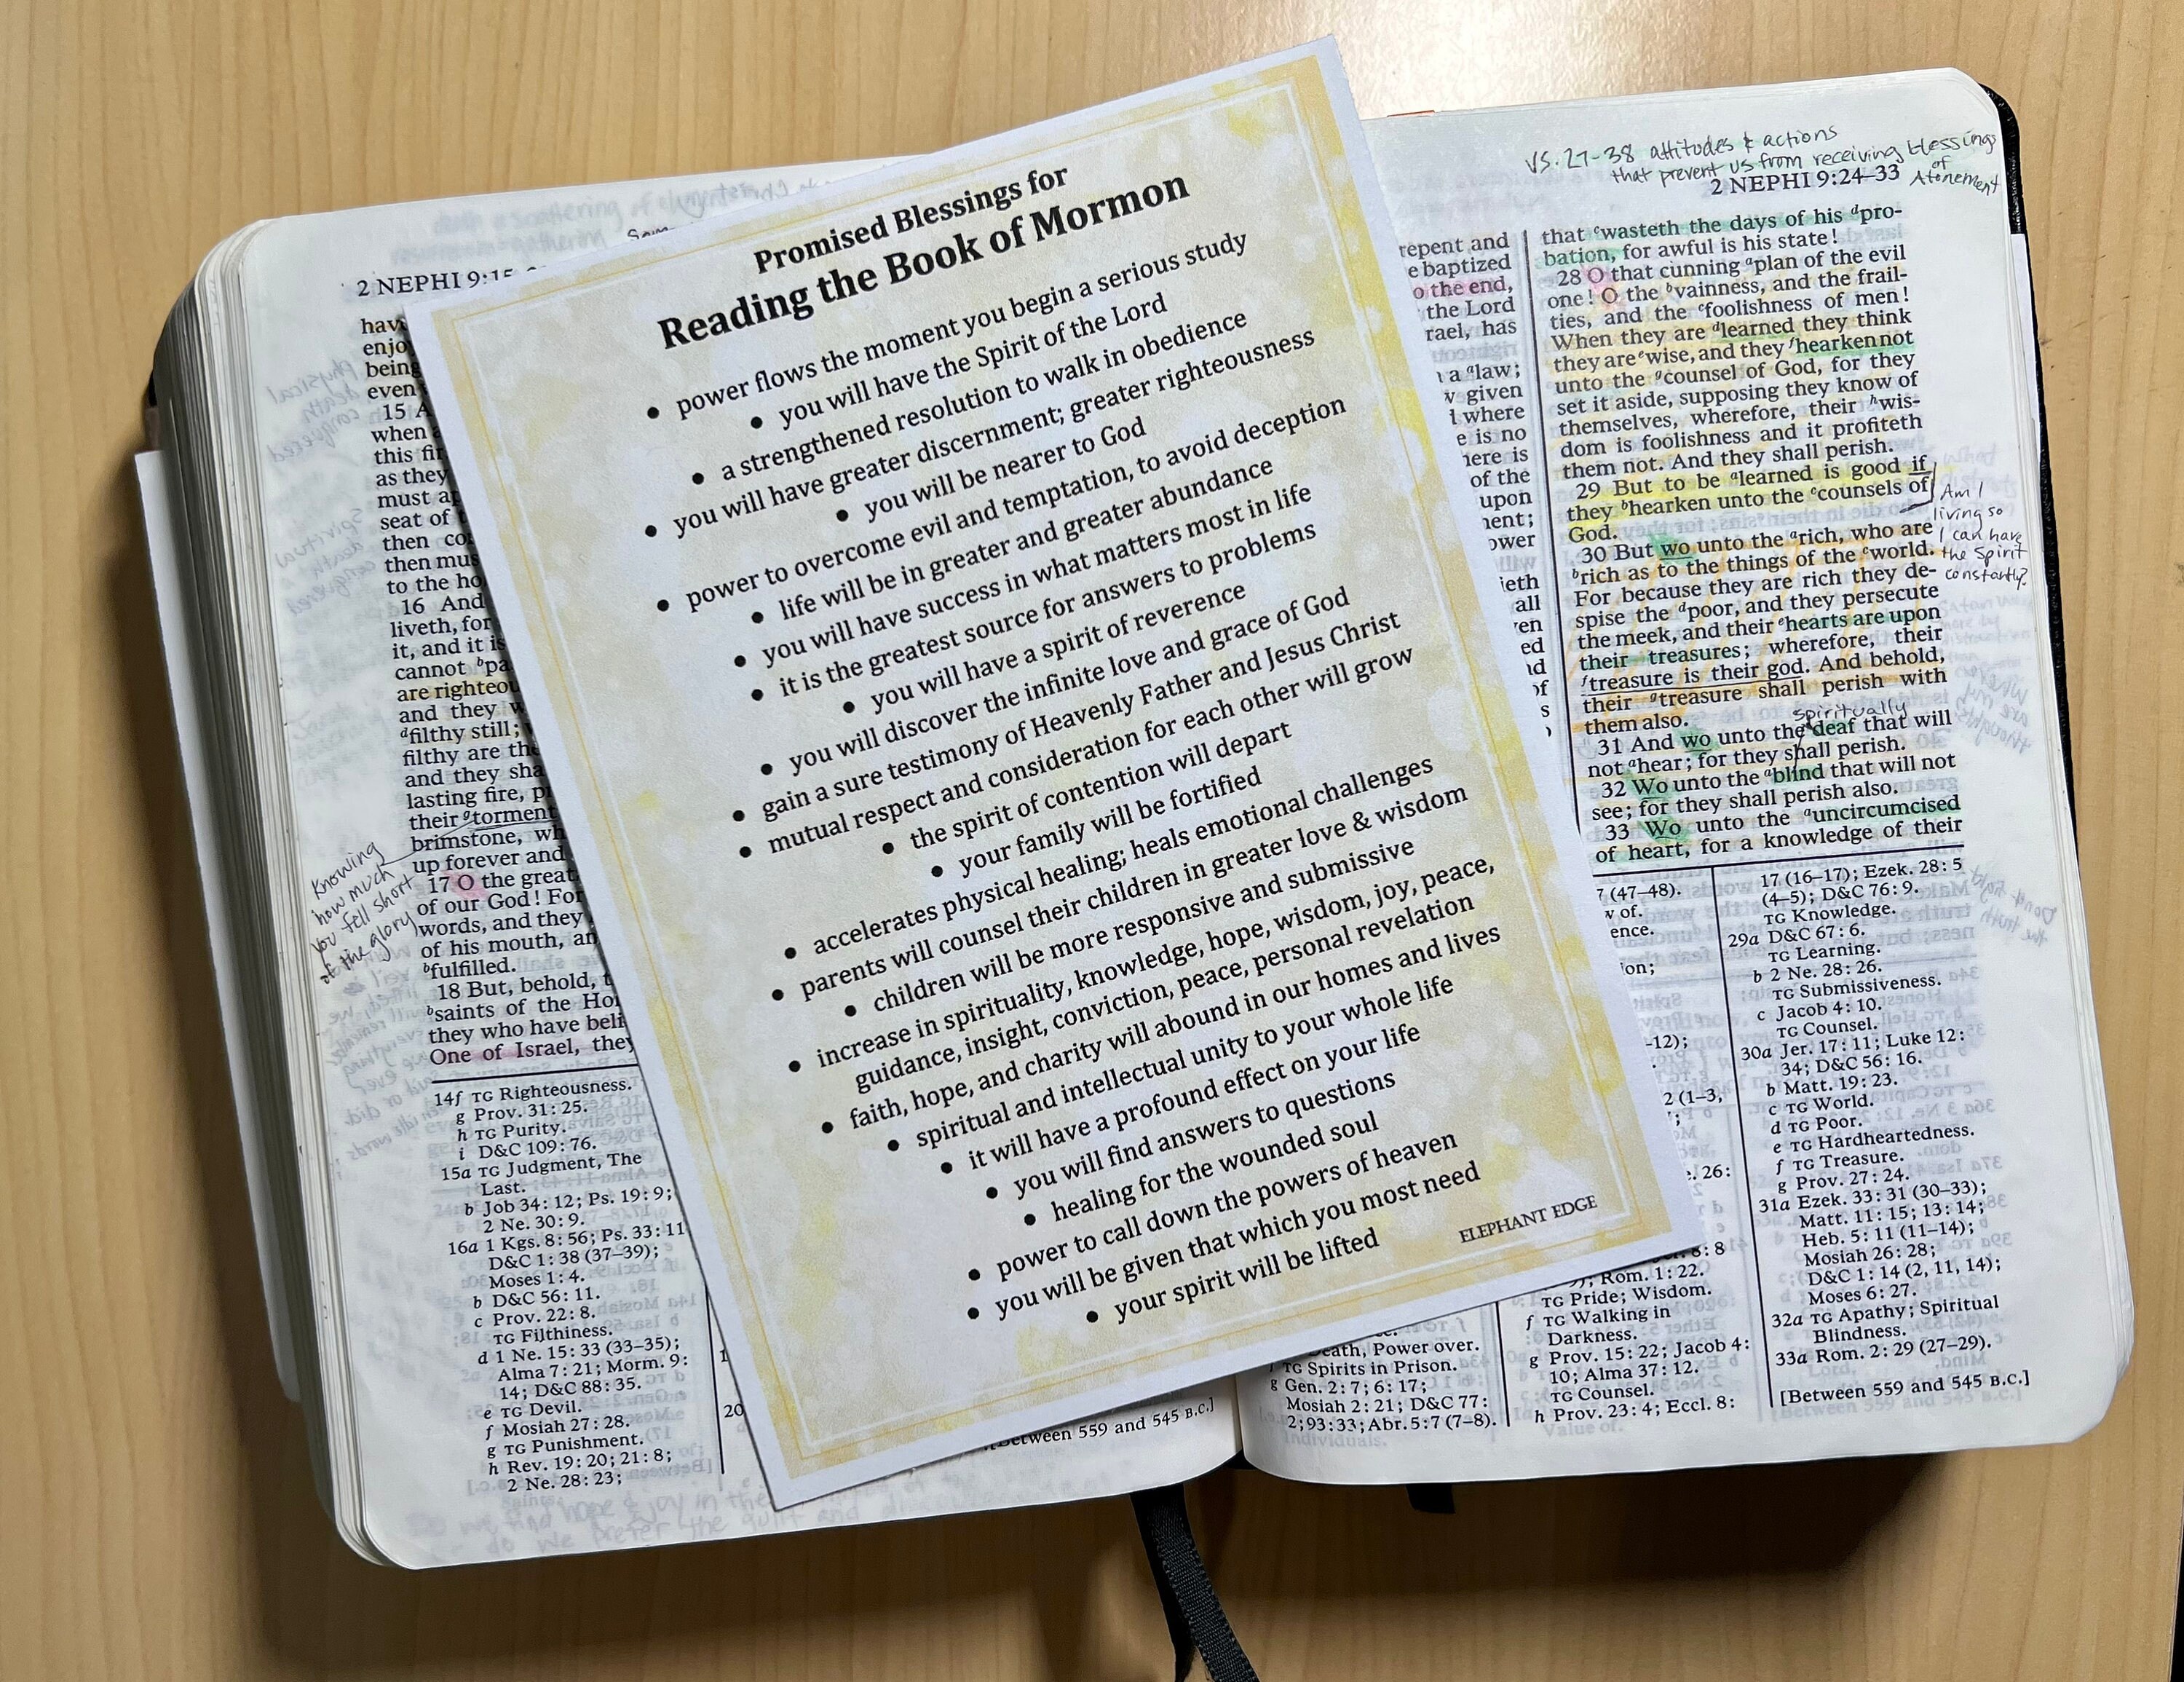 2 NEPHI 9:15
have
enjo
being
even
15 A
when
this fir
as they
must a
seat of
then co
then mus
to the ho
16 And
liveth, for
it, and it is
cannot ᵇpa
are righteou
and they w
ᵈfilthy still;
filthy are the
and they sha
lasting fire, p
their ᵍtorment
brimstone, wh
up forever and
17 O the great
of our God! For
words, and they
of his mouth, an
ᵇfulfilled.
18 But, behold, t
ᵇsaints of the Ho
they who have beli
One of Israel, they
Knowing
how much
you fell short
of the glory
14f TG Righteousness.
g Prov. 31:25.
h TG Purity.
i D&C 109:76.
15a TG Judgment, The
Last.
b Job 34:12; Ps. 19:9;
2 Ne. 30:9.
16a 1 Kgs. 8:56; Ps. 33:11
D&C 1:38 (37–39);
Moses 1:4.
b D&C 56:11.
c Prov. 22:8.
TG Filthiness.
d 1 Ne. 15:33 (33–35);
Alma 7:21; Morm. 9:
14; D&C 88:35.
e TG Devil.
f Mosiah 27:28.
g TG Punishment.
h Rev. 19:20; 21:8;
2 Ne. 28:23;
20
Between 559 and 545 B.C.]
Promised Blessings for
Reading the Book of Mormon
• power flows the moment you begin a serious study
• you will have the Spirit of the Lord
• a strengthened resolution to walk in obedience
• you will have greater discernment; greater righteousness
• you will be nearer to God
• power to overcome evil and temptation, to avoid deception
• life will be in greater and greater abundance
• you will have success in what matters most in life
• it is the greatest source for answers to problems
• you will have a spirit of reverence
• you will discover the infinite love and grace of God
• gain a sure testimony of Heavenly Father and Jesus Christ
• mutual respect and consideration for each other will grow
• the spirit of contention will depart
• your family will be fortified
• accelerates physical healing; heals emotional challenges
• parents will counsel their children in greater love & wisdom
• children will be more responsive and submissive
• increase in spirituality, knowledge, hope, wisdom, joy, peace,
guidance, insight, conviction, peace, personal revelation
• faith, hope, and charity will abound in our homes and lives
• spiritual and intellectual unity to your whole life
• it will have a profound effect on your life
• you will find answers to questions
• healing for the wounded soul
• power to call down the powers of heaven
• you will be given that which you most need
• your spirit will be lifted
ELEPHANT EDGE
repent and
e baptized
o the end,
the Lord
rael, has
a ᵃlaw;
given
where
e is no
here is
of the
upon
ment;
ower
ieth
all
ven
ed
7 (47–48).
w of.
ence.
ion;
-12);
2 (1–3,
26:
8:8
Rom. 1:22.
Death, Power over.
TG Spirits in Prison.
g Gen. 2:7; 6:17;
Mosiah 2:21; D&C 77:
2; 93:33; Abr. 5:7 (7–8).
TG Pride; Wisdom.
f TG Walking in
Darkness.
g Prov. 15:22; Jacob 4:
10; Alma 37:12.
TG Counsel.
h Prov. 23:4; Eccl. 8:
vs. 27-38 attitudes & actions
that prevent us from receiving blessings
of
Atonement
2 NEPHI 9:24–33
that ᶜwasteth the days of his ᵈpro-
bation, for awful is his state!
28 O that cunning ᵃplan of the evil
one! O the ᵇvainness, and the frail-
ties, and the ᶜfoolishness of men!
When they are ᵈlearned they think
they are ᵉwise, and they ᶠhearken not
unto the ᵍcounsel of God, for they
set it aside, supposing they know of
themselves, wherefore, their ʰwis-
dom is foolishness and it profiteth
them not. And they shall perish.
29 But to be ᵃlearned is good if
they ᵇhearken unto the ᶜcounsels of
God.
30 But wo unto the ᵃrich, who are
ᵇrich as to the things of the ᶜworld.
For because they are rich they de-
spise the ᵈpoor, and they persecute
the meek, and their ᵉhearts are upon
their treasures; wherefore, their
ᶠtreasure is their god. And behold,
their ᵍtreasure shall perish with
them also.
spiritually
31 And wo unto the deaf that will
not ᵃhear; for they shall perish.
32 Wo unto the ᵃblind that will not
see; for they shall perish also.
33 Wo unto the ᵃuncircumcised
of heart, for a knowledge of their
Am I
living so
I can have
the Spirit
constantly?
17 (16–17); Ezek. 28:5
(4–5); D&C 76:9.
TG Knowledge.
29a D&C 67:6.
TG Learning.
b 2 Ne. 28:26.
TG Submissiveness.
c Jacob 4:10.
TG Counsel.
30a Jer. 17:11; Luke 12:
34; D&C 56:16.
b Matt. 19:23.
c TG World.
d TG Poor.
e TG Hardheartedness.
f TG Treasure.
g Prov. 27:24.
31a Ezek. 33:31 (30–33);
Matt. 11:15; 13:14;
Heb. 5:11 (11–14);
Mosiah 26:28;
D&C 1:14 (2, 11, 14);
Moses 6:27.
32a TG Apathy; Spiritual
Blindness.
33a Rom. 2:29 (27–29).
[Between 559 and 545 B.C.]